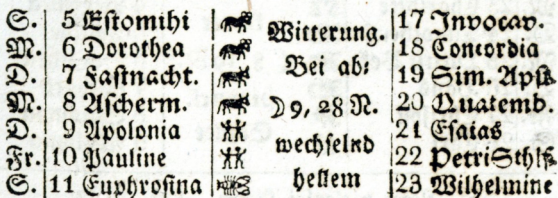 S. 5 Eſtomihi Witterung. 17 Invocav.
M. 6 Dorothea 18 Concordia
D. 7 Faſtnacht. Bei ab⸗ 19 Sim. Apſt.
M. 8 Aſcherm. ☽ 9, 28 N. 20 Quatemb.
D. 9 Apolonia 21 Eſaias
Fr. 10 Pauline wechſelnd 22 Petri Sthlf.
S. 11 Euphroſina hellem 23 Wilhelmine